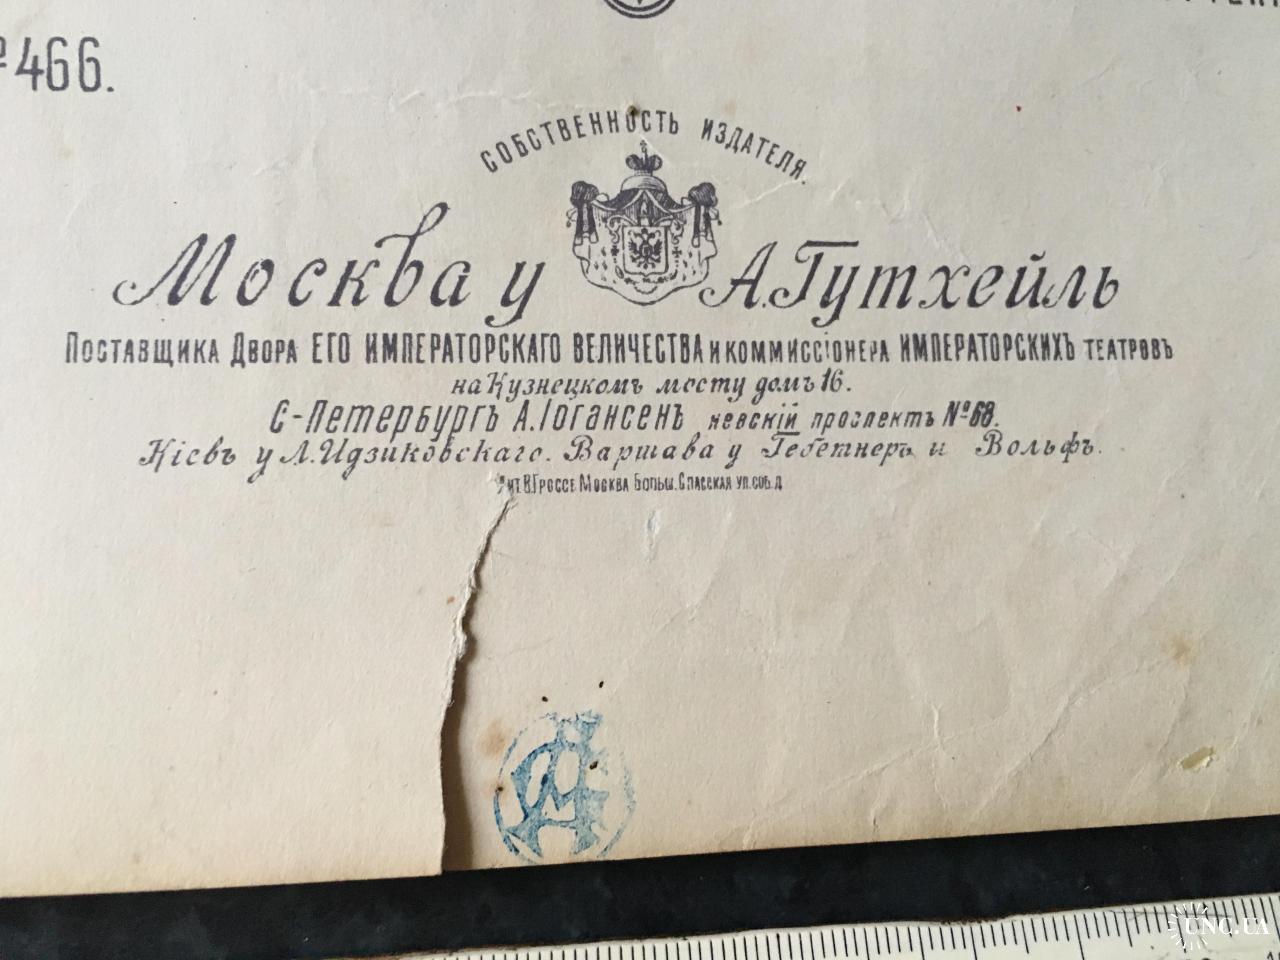 №466.
СОБСТВЕННОСТЬ ИЗДАТЕЛЯ.
Москва у А.Гутхейль
Поставщика Двора ЕГО ИМПЕРАТОРСКАГО ВЕЛИЧЕСТВА и КОММИССІОНЕРА ИМПЕРАТОРСКИХЪ ТЕАТРОВЪ
на Кузнецкомъ мосту домъ 16.
С-Петербургъ А.Іогансенъ невскій проспектъ №68.
Кіевъ у Л.Идзиковскаго. Варшава у Гебетнеръ и Вольфъ.
Лит.В.Гроссе Москва Больш.Спасская ул.соб.д
UNC.UA